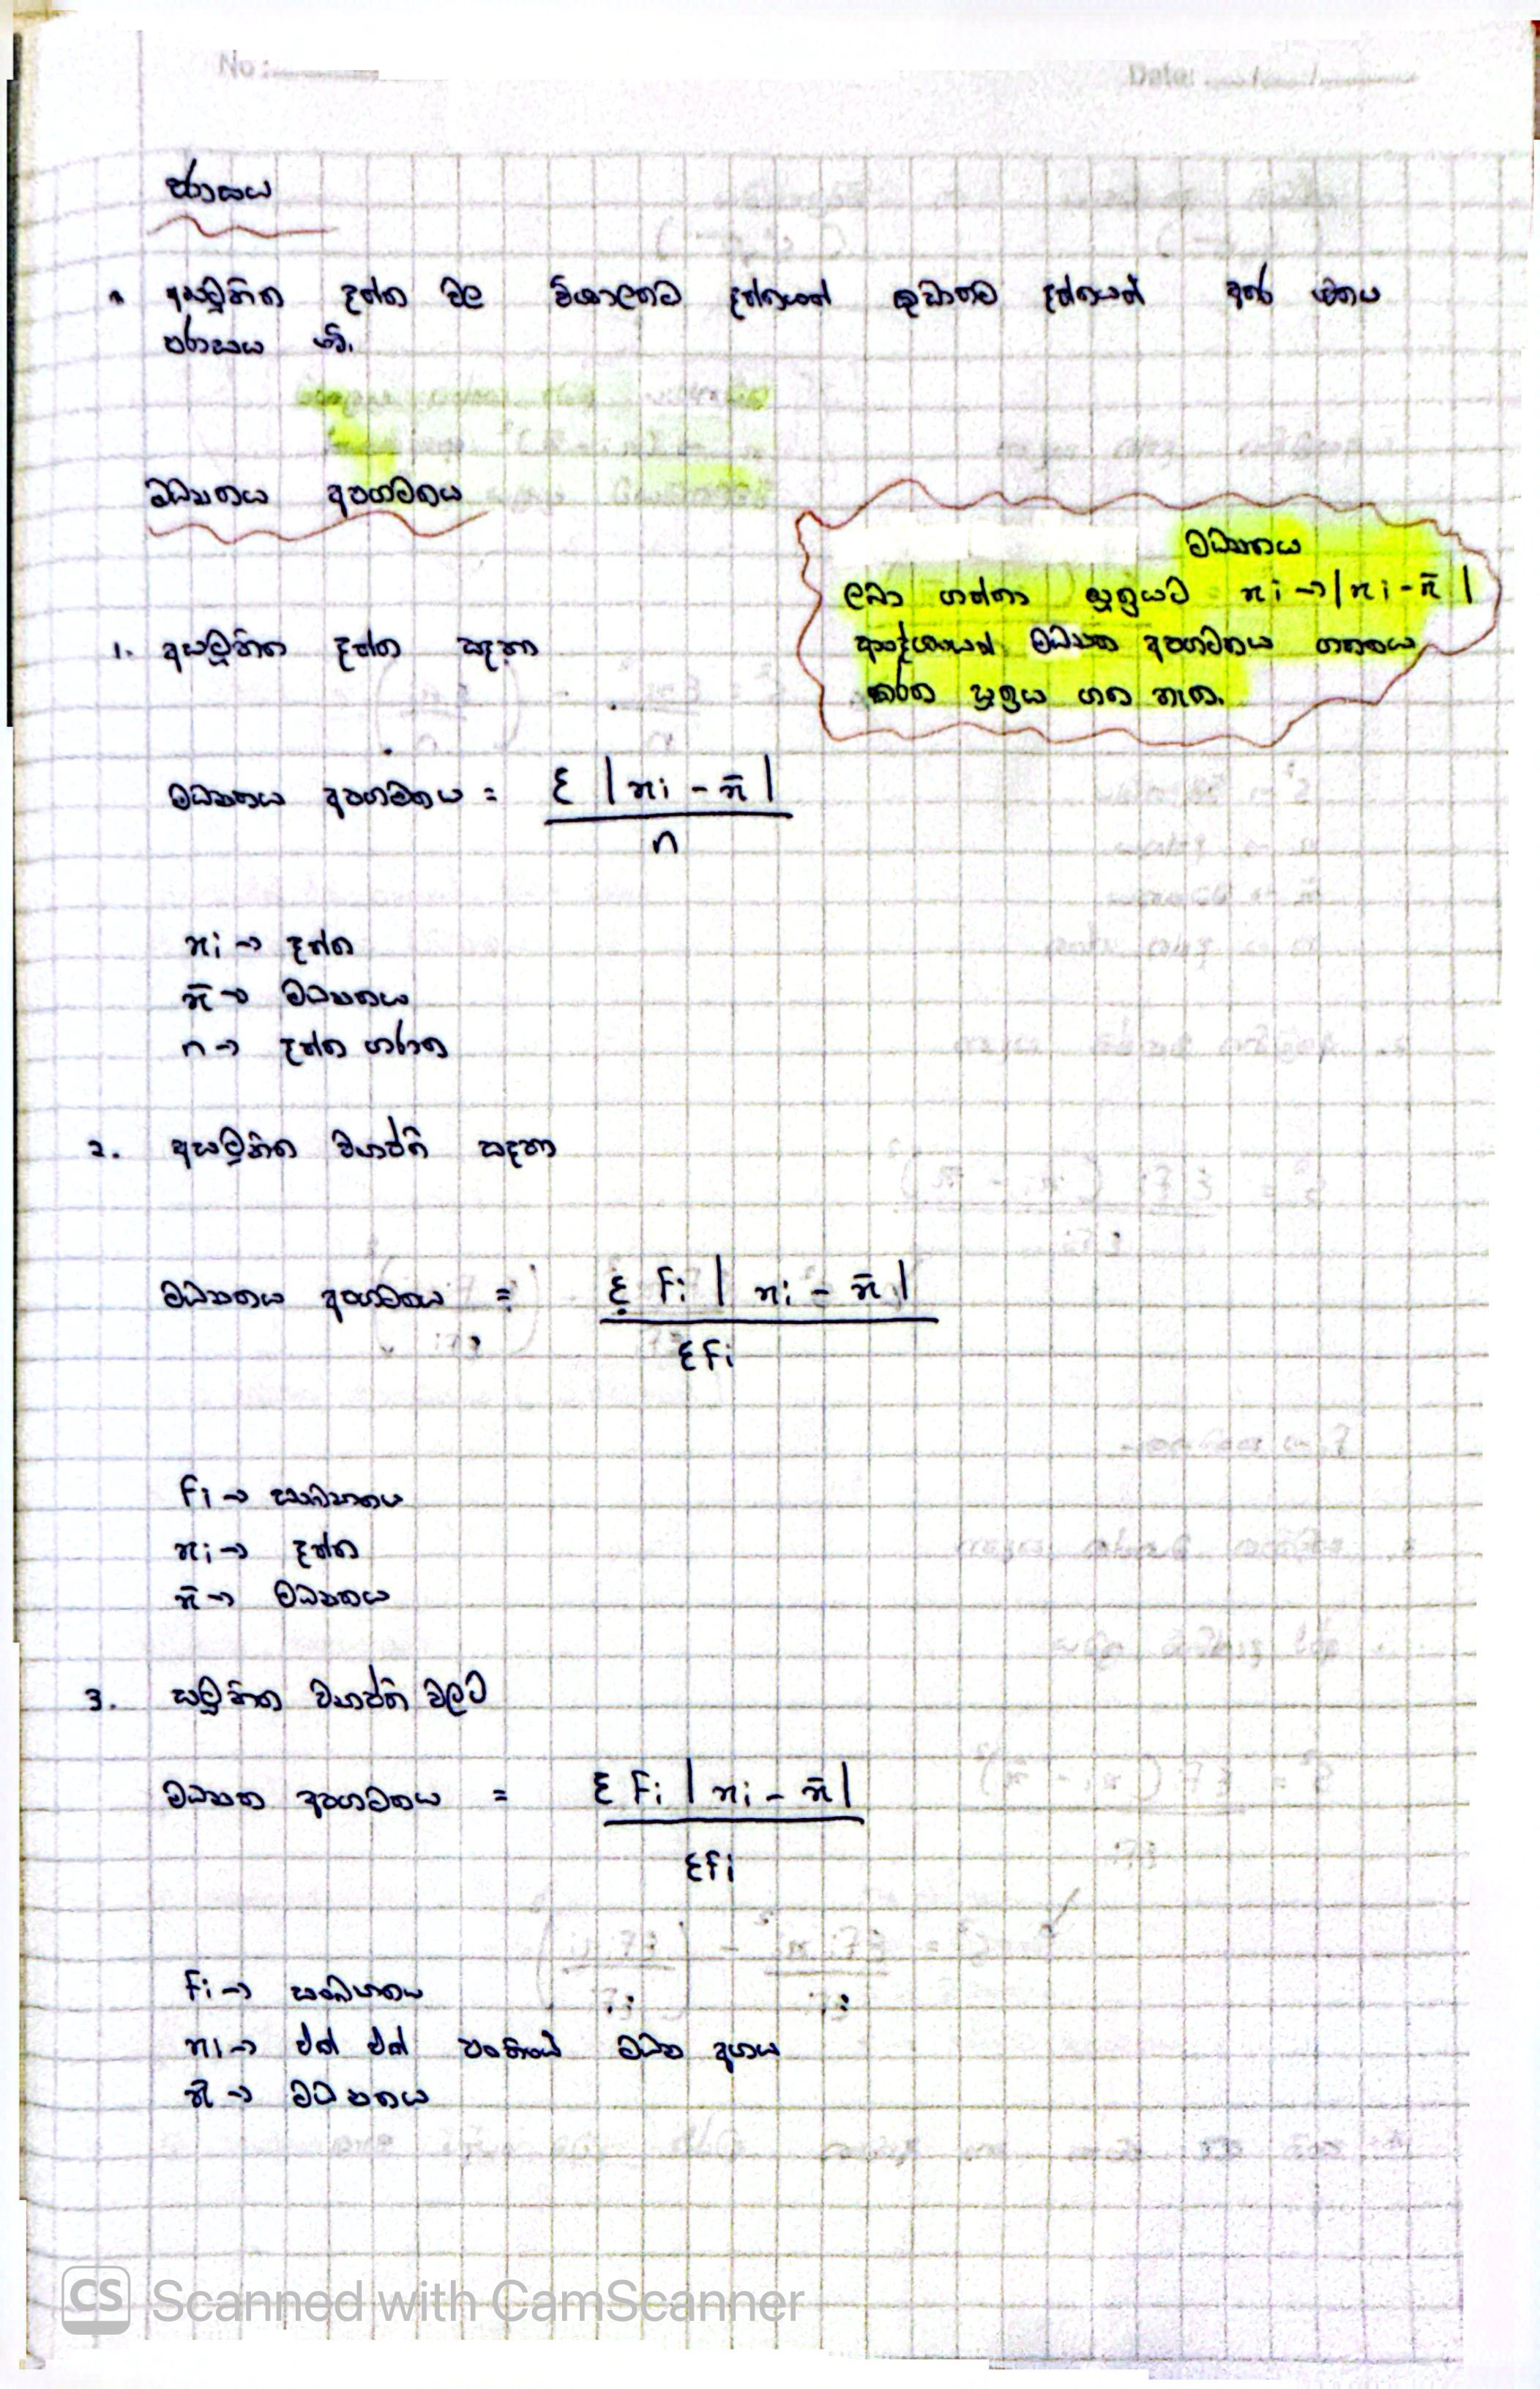 No: Date: / /
පරාසය
අසමූහිත දත්ත වල විශාලතම දත්තයත් කුඩාතම දත්තයත් අතර වෙනස
පරාසය වේ.
මධ්‍යන්‍යය අපගමනය
මධ්‍යන්‍යය
ලබා ගන්නා සූත්‍රයට xi → |xi - x̄|
ආදේශයෙන් මධ්‍යන්‍ය අපගමනය ගණනය
කරන සූත්‍රය ගත හැක.
1. අසමූහිත දත්ත සඳහා
මධ්‍යන්‍යය අපගමනය = Σ |xi - x̄|
n
xi → දත්ත
x̄ → මධ්‍යන්‍යය
n → දත්ත ගණන
2. අසමූහිත ව්‍යාප්ති සඳහා
මධ්‍යන්‍යය අපගමනය = Σ Fi | xi - x̄ |
ΣFi
Fi → සංඛ්‍යාතය
xi → දත්ත
x̄ → මධ්‍යන්‍යය
3. සමූහිත ව්‍යාප්ති වලට
මධ්‍යන්‍ය අපගමනය = Σ Fi | xi - x̄ |
ΣFi
Fi → සංඛ්‍යාතය
xi → එක් එක් පංතියේ මධ්‍ය අගය
x̄ → මධ්‍යන්‍යය
CS Scanned with CamScanner